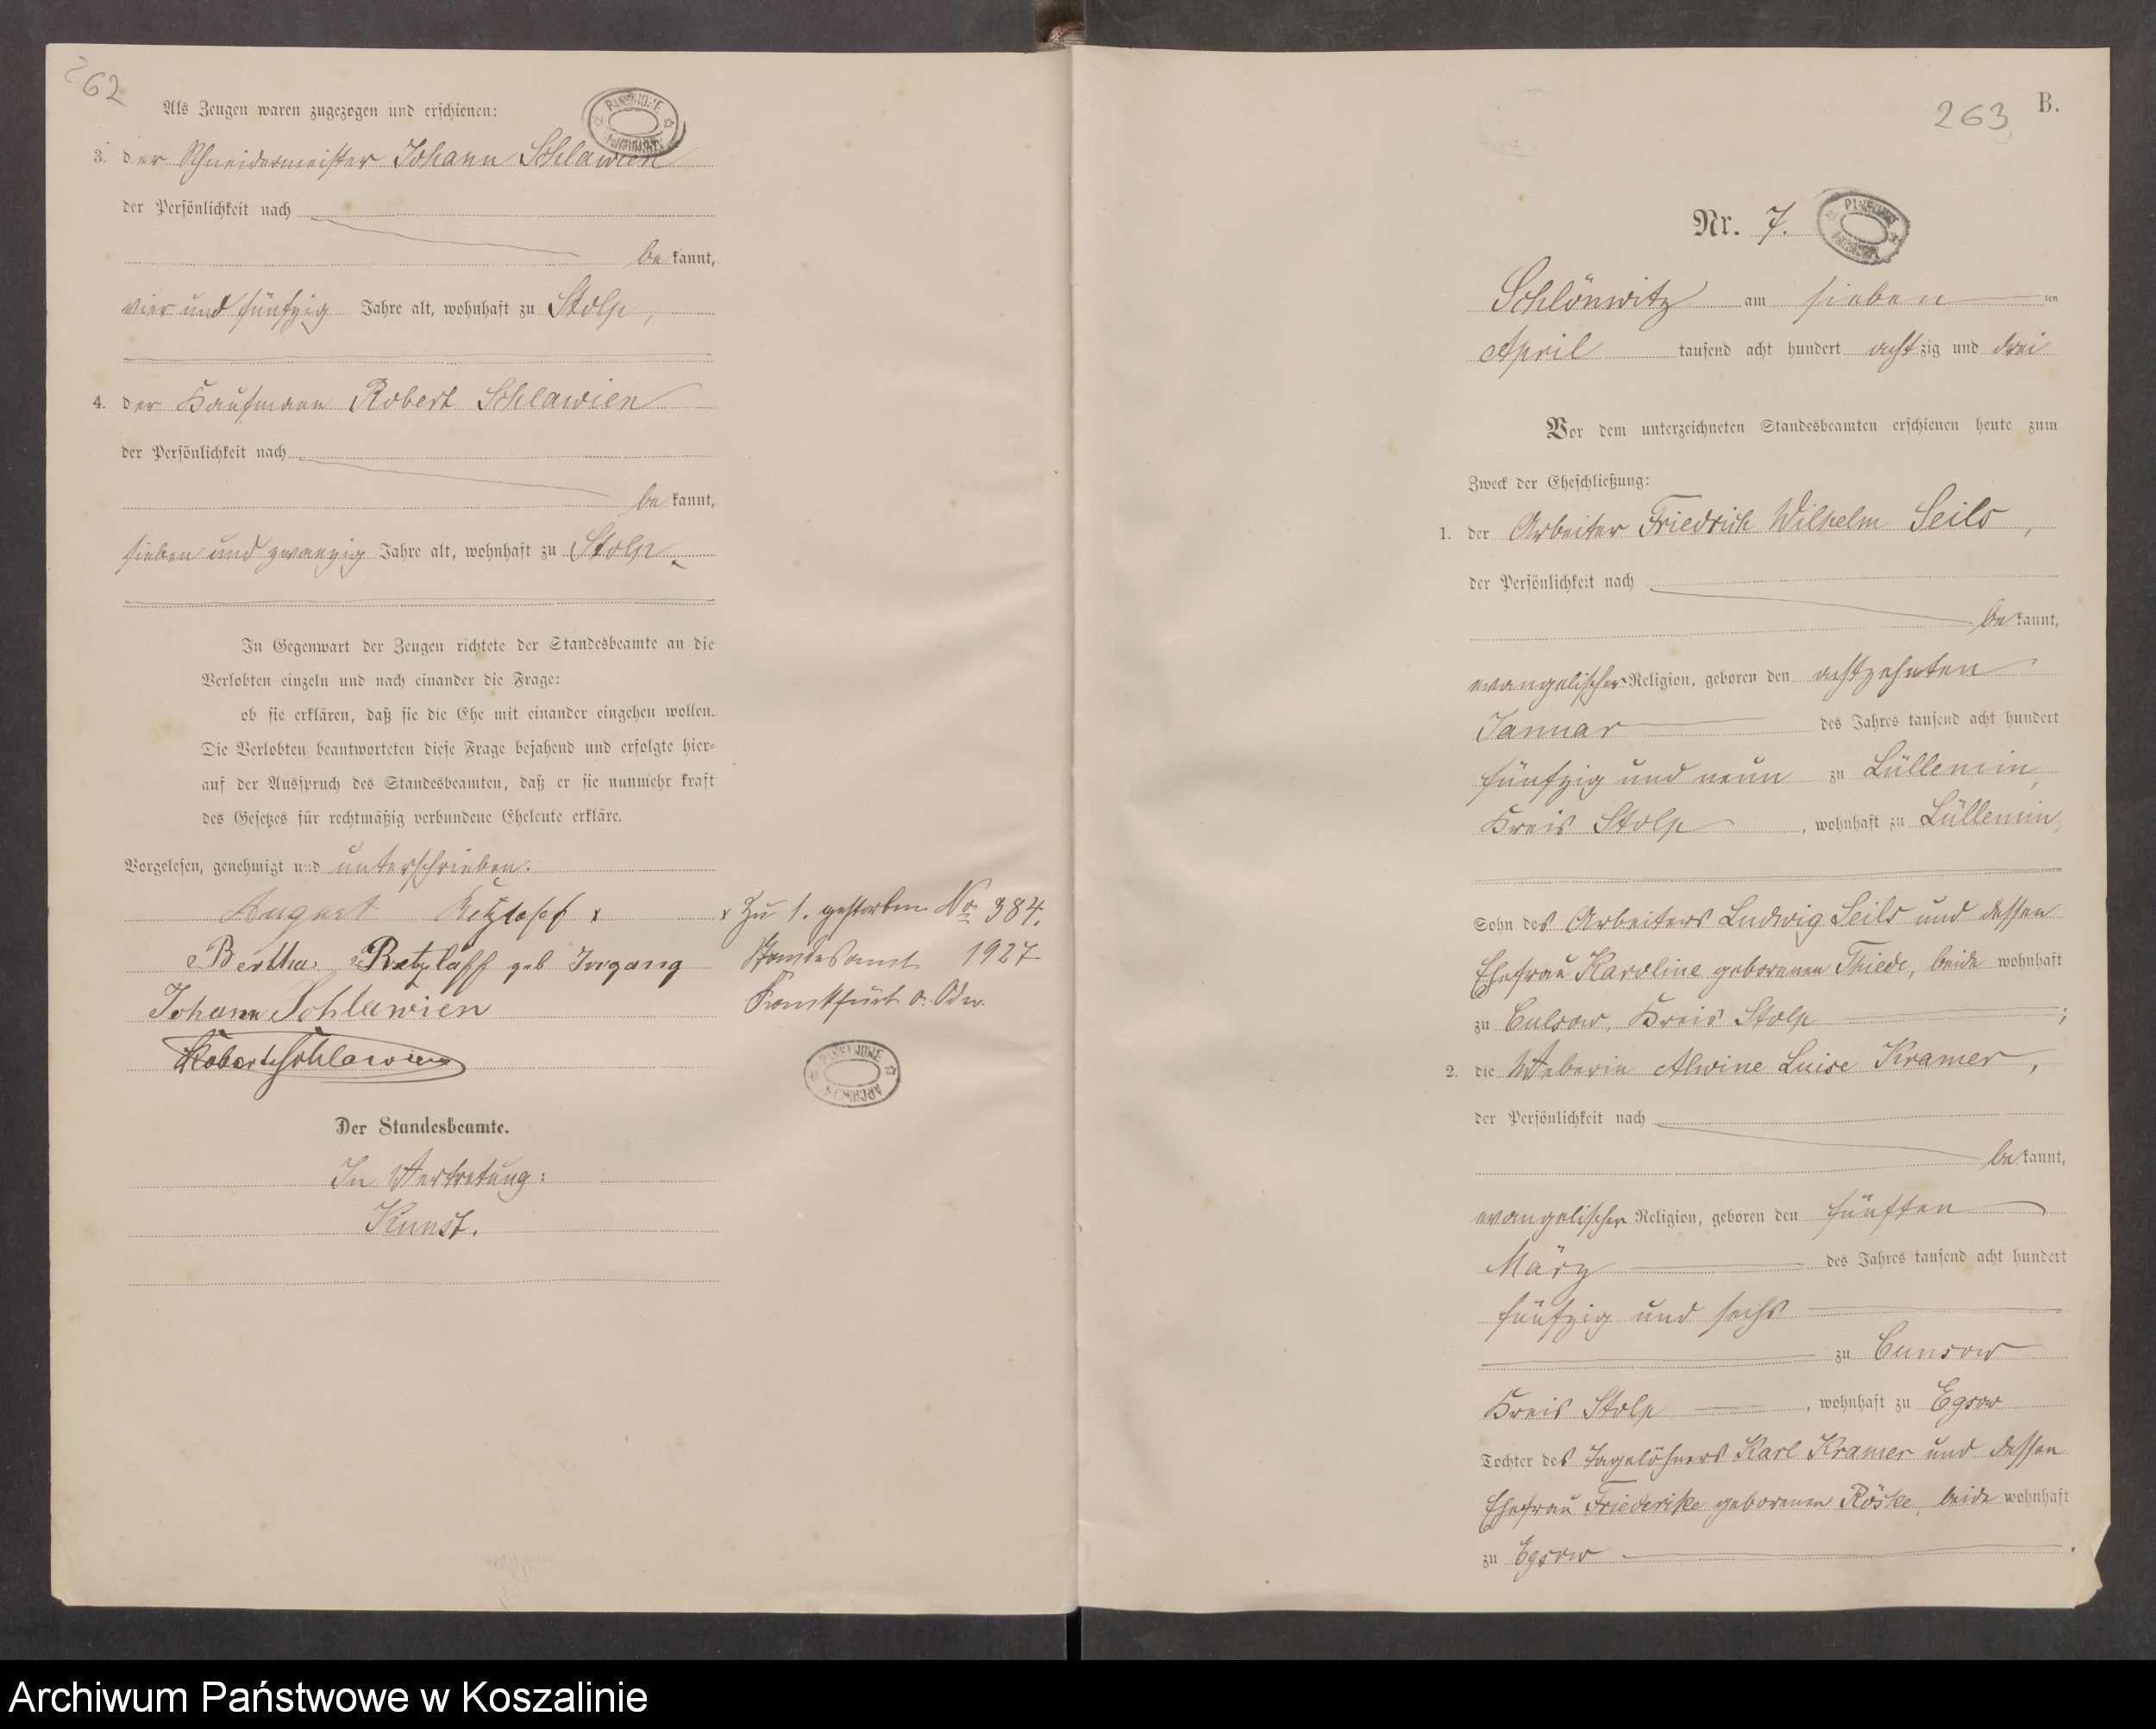 262
Als Zeugen waren zugezogen und erschienen:
3. der Schneidermeister Johann Schlawien
der Persönlichkeit nach
bekannt,
vier und fünfzig Jahre alt, wohnhaft zu Stolp,
4. der Kaufmann Robert Schlawien
der Persönlichkeit nach
bekannt,
sieben und zwanzig Jahre alt, wohnhaft zu Stolp.
In Gegenwart der Zeugen richtete der Standesbeamte an die
Verlobten einzeln und nach einander die Frage:
ob sie erklären, daß sie die Ehe mit einander eingehen wollen.
Die Verlobten beantworteten diese Frage bejahend und erfolgte hier-
auf der Ausspruch des Standesbeamten, daß er sie nunmehr kraft
des Gesetzes für rechtmäßig verbundene Eheleute erkläre.
Vorgelesen, genehmigt und unterschrieben.
August x
Bertha Retzlaff geb Irrgang
Johann Schlawien
Robert Schlawien
x Zu 1. gestorben No 384.
Standesamt 1927
Frankfurt a. Oder.
PAŃSTWOWE ARCHIWUM
Der Standesbeamte.
In Vertretung:
Kunst.
263 B.
Nr. 7.
Schlönwitz am sieben ten
April tausend acht hundert achtzig und drei
Vor dem unterzeichneten Standesbeamten erschienen heute zum
Zweck der Eheschließung:
1. der Arbeiter Friedrich Wilhelm Seils,
der Persönlichkeit nach
bekannt,
evangelischer Religion, geboren den achtzehnten
Januar des Jahres tausend acht hundert
fünfzig und neun zu Lüllemin,
Kreis Stolp, wohnhaft zu Lüllemin,
Sohn des Arbeiters Ludwig Seils und dessen
Ehefrau Karoline geborenen Thiede, beide wohnhaft
zu Culsow, Kreis Stolp;
2. die Weberin Alwine Luise Kramer,
der Persönlichkeit nach
bekannt,
evangelischer Religion, geboren den fünften
März des Jahres tausend acht hundert
fünfzig und sechs
zu Cunsow
Kreis Stolp, wohnhaft zu Egsow
Tochter des Tagelöhners Karl Kramer und dessen
Ehefrau Friederike geborenen Röske, beide wohnhaft
zu Egsow.
Archiwum Państwowe w Koszalinie